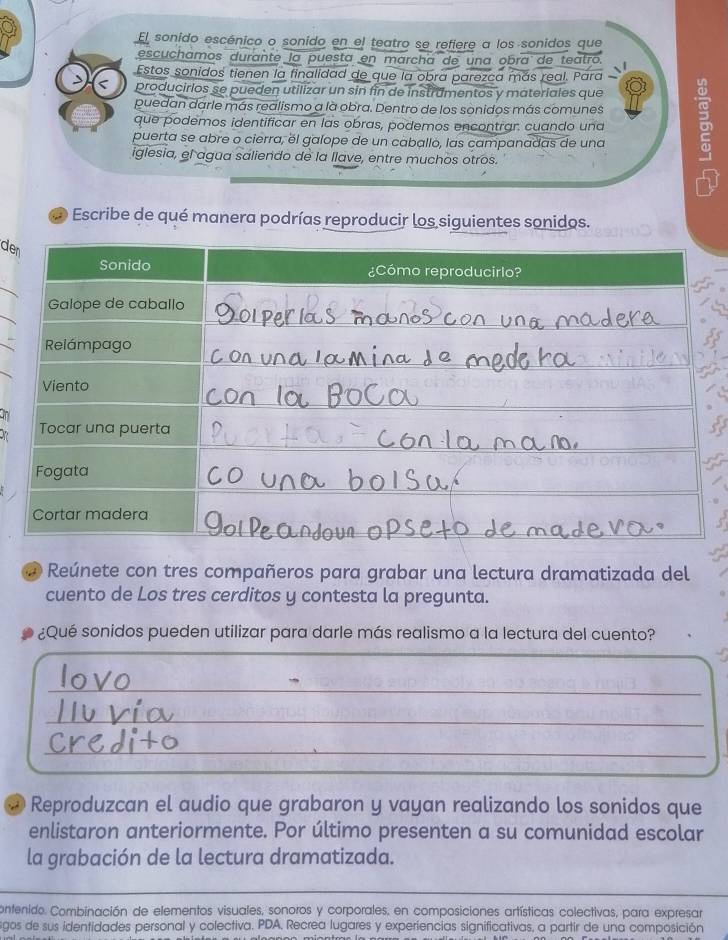 El sonido escénico o sonido en el teatro se refiere a los sonidos que
escuchamos durante la puesta en marcha de una obra de teatro.
Estos sonidos tienen la finalidad de que la obra parezca más real. Para
producirlos se pueden utilizar un sin fin de instrumentos y materiales que
puedan darle más realismo a la obra. Dentro de los sonidos más comunes
que podemos identificar en las obras, podemos encontrar: cuando una
puerta se abre o cierra, el galope de un caballo, las campanadas de una
iglesia, el agua saliendo de la llave, entre muchos otros.
Lenguajes
Escribe de qué manera podrías reproducir los siguientes sonidos.
der
Sonido ¿Cómo reproducirlo?
Galope de caballo golper las manos con una madera
Relámpago con una lamina de medera
Viento con la BoCa
Tocar una puerta con la mano.
Fogata co una bolsa.
Cortar madera golpeandoun opseto de madera.
Reúnete con tres compañeros para grabar una lectura dramatizada del
cuento de Los tres cerditos y contesta la pregunta.
¿Qué sonidos pueden utilizar para darle más realismo a la lectura del cuento?
lovo
lluvia
credito
Reproduzcan el audio que grabaron y vayan realizando los sonidos que
enlistaron anteriormente. Por último presenten a su comunidad escolar
la grabación de la lectura dramatizada.
ontenido. Combinación de elementos visuales, sonoros y corporales, en composiciones artísticas colectivas, para expresar
sgos de sus identidades personal y colectiva. PDA. Recrea lugares y experiencias significativas, a partir de una composición